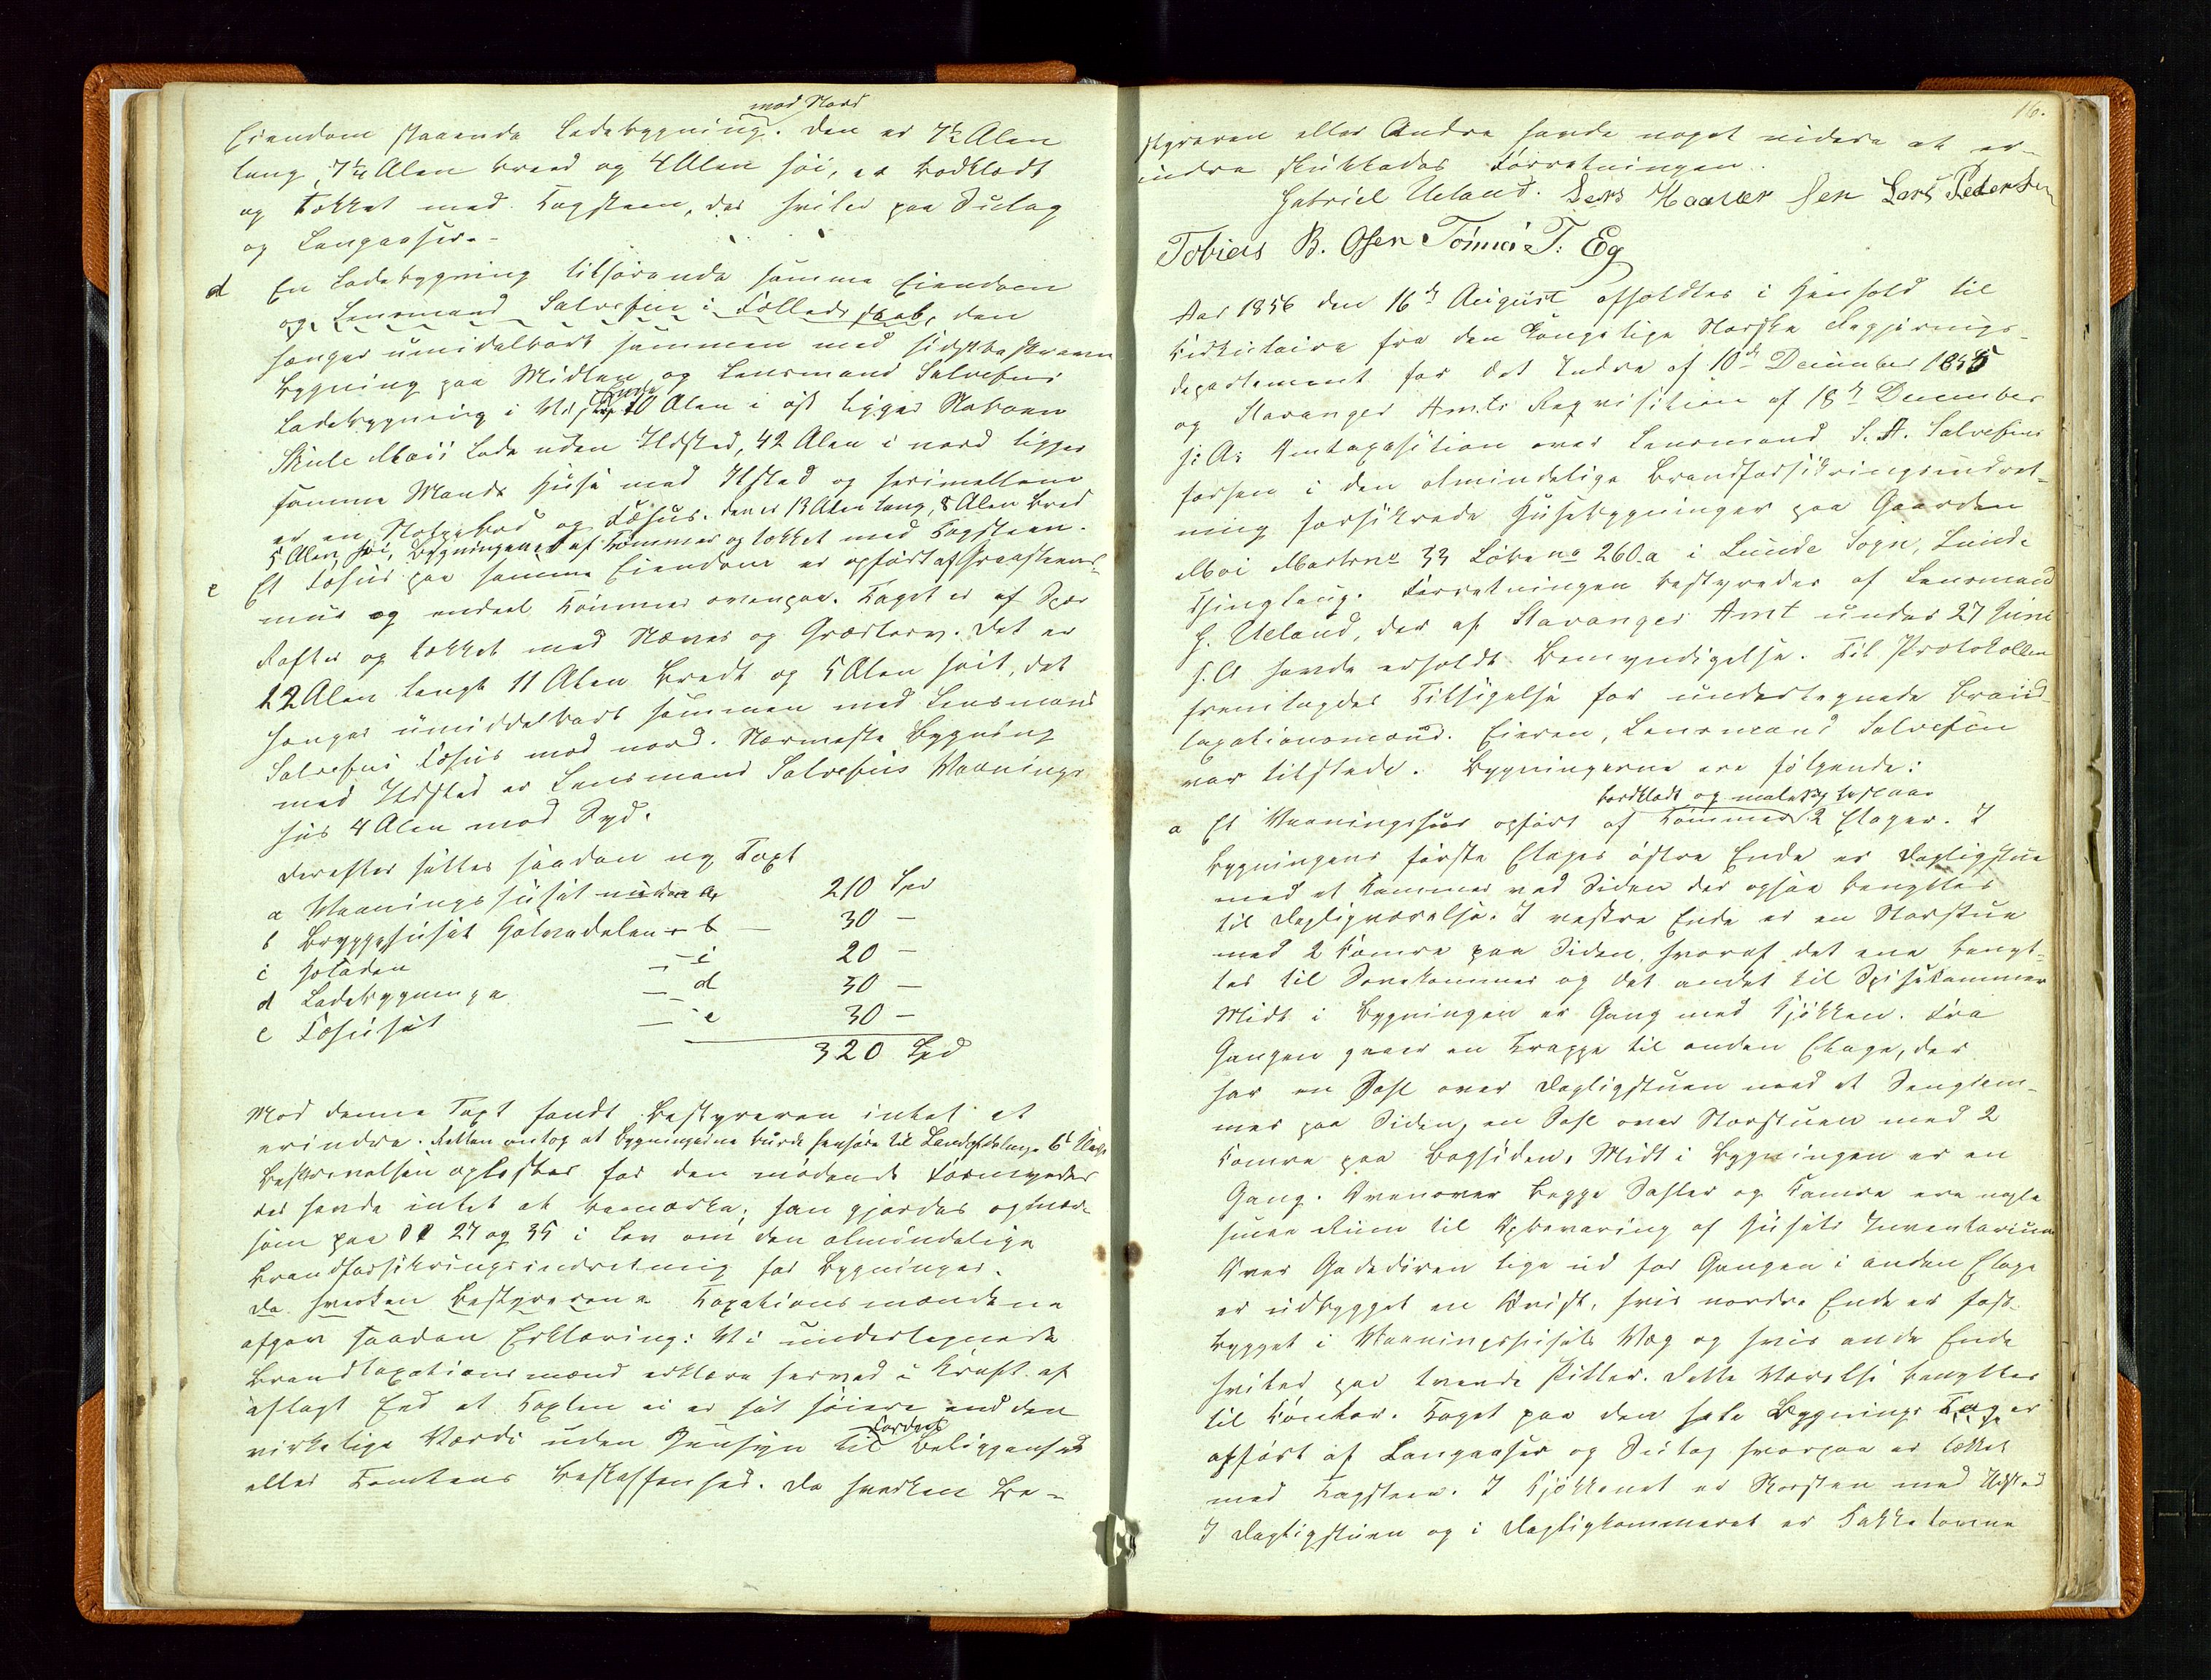 mod Nord
Eiendom staaende Ladebygning. Den er 7½ Alen
lang, 7¼ Alen breed og 4 Alen høi, er bordklædt
og tækket med Tagsteen, der hviler paa Sutag
og Langaaser.
d En Ladebygning tilhørende samme Eiendom
og Lensmand Salvesen i Fælledsskab, den
hænger umidelbart sammen med sidstbeskrevne
Bygning paa Midten og Lensmand Salvesens
Ladebygning i Vest 10 Alen i øst ligger Naboen
Skule Mois Lade uden Ildsted, 42 Alen i nord ligger
samme Mands Huse med Ilsted og herimellem
er en og Føhus. den er 13 Alen lang, 8 Alen bred
5 Alen høi, Bygningen er af Tømmer og tækket med Tagsteen.
e Et Føhus paa samme Eiendom er opført af Graasteens-
muur og endeel Tømmer ovenpaa. Taget er af Spær
Rafter og tækket med Næver og Græstorv. Det er
12 Alen langt 11 Alen bredt og 5 Alen høit, det
hænger umiddelbart sammen med Lensmand
Salvesens Føhus mod nord. Nærmeste Bygning
med Ildsted er Lensmand Salvesens Vaanings
hus 4 Alen mod Syd.
Derefter sattes saadan ny Taxt
a Vaaningshuset under a 210 Spd
b Bryggehuset Halvedelen - b — 30 —
c Høladen - c 20 —
d Ladebygningen — d 30 —
e Føhuset — e 30 —
320 Spd
Mod denne Taxt fandt Bestyreren intet at
erindre. Retten antog at Bygningerne burde henføres til 6te Klasse
Beskrivelsen oplæstes for den mødende
der havde intet at bemærke; han gjordes opmærk
som paa §§ 27 og 35 i Lov om den almindelige
Brandforsikringsindretning for Bygninger.
Da hverken Bestyreren e Taxationsmændene
afgav saadan Erklæring: Vi undertegnede
Brandtaxationsmænd erklære herved i Kraft af
aflagt Eed at Taxten ei er sat høiere end den
virkelige Værdi uden Hensyn til Jordens Beliggenhed
eller Tomtens Beskaffenhed. Da hverken Be-
16.
styreren eller Andre havde noget videre at er-
indre sluttedes Forretningen.
Gabriel Ueland. Lars Haaver sen Lars Pedersen
Tobias B. Osen Tønnes T. Eg
Aar 1856 den 16de August afholdtes i Henhold til
Cirkulaire fra den kongelige Norske Regjerings-
departement for det Indre af 10de December 1845
og Stavanger Amts Reqvisition af 18de December
f: A: Omtaxasition over Lensmand S. A. Salvesens
forhen i den almindelige Brandforsikringsindret-
ning forsikrede Husebygninger paa Gaarden
Moi Matr no 33 Løbe no 260a i Lunde Sogn, Lunde
Thinglaug. Forretningen bestyredes af Lensmand
G. Ueland, der af Stavanger Amt under 27 Juni
s. A havde erholdt Bemyndigelse. Til Protokollen
fremlagdes Tilsigelse for undertegnede Brand-
taxationsmænd. Eieren, Lensmand Salvesen
var tilstede. Bygningerne ere følgende:
bordklædt og malet og bestaar
a Et Vaaningshuus opført af Tømmer 2 Etager. I
Bygningens første Etages østre Ende er Dagligstue
med et Kammer ved Siden der ogsaa benyttes
til Dagligværelse. I vestre Ende er en Storstue
med 2 Kamre paa Siden, hvoraf det ene benyt-
tes til Sovekammer og det andet til Spisekammer
Midt i Bygningen er Gang med Kjøkken. Fra
Gangen gaaer en Trappe til anden Etage, der
har en Sahl over Dagligstuen med et Sengkam-
mer paa Siden, en Sahl over Storstuen med 2
Kamre paa Bagsiden. Midt i Bygningen er en
Gang. Ovenover begge Sahler og Kamre ere nogle
smaa Rum til Opbevaring af Husets Inventarium
Over Gadedøren lige ud for Gangen i anden Etage
er udbygget en Kvist, hvis nordre Ende er fast
bygget i Vaaningshusets Væg og hvis anden Ende
hviler paa tvende Piller. Dette Værelse benyttes
til Kontor. Taget paa den hele Bygnings Tag er
opført af Langaaser og Sutag hvorpaa er tækket
med Tagsteen. I Kjøkkenet er Skorsten med Ildsted
I Dagligstuen og i Dagligkammeret er Kakkelovne